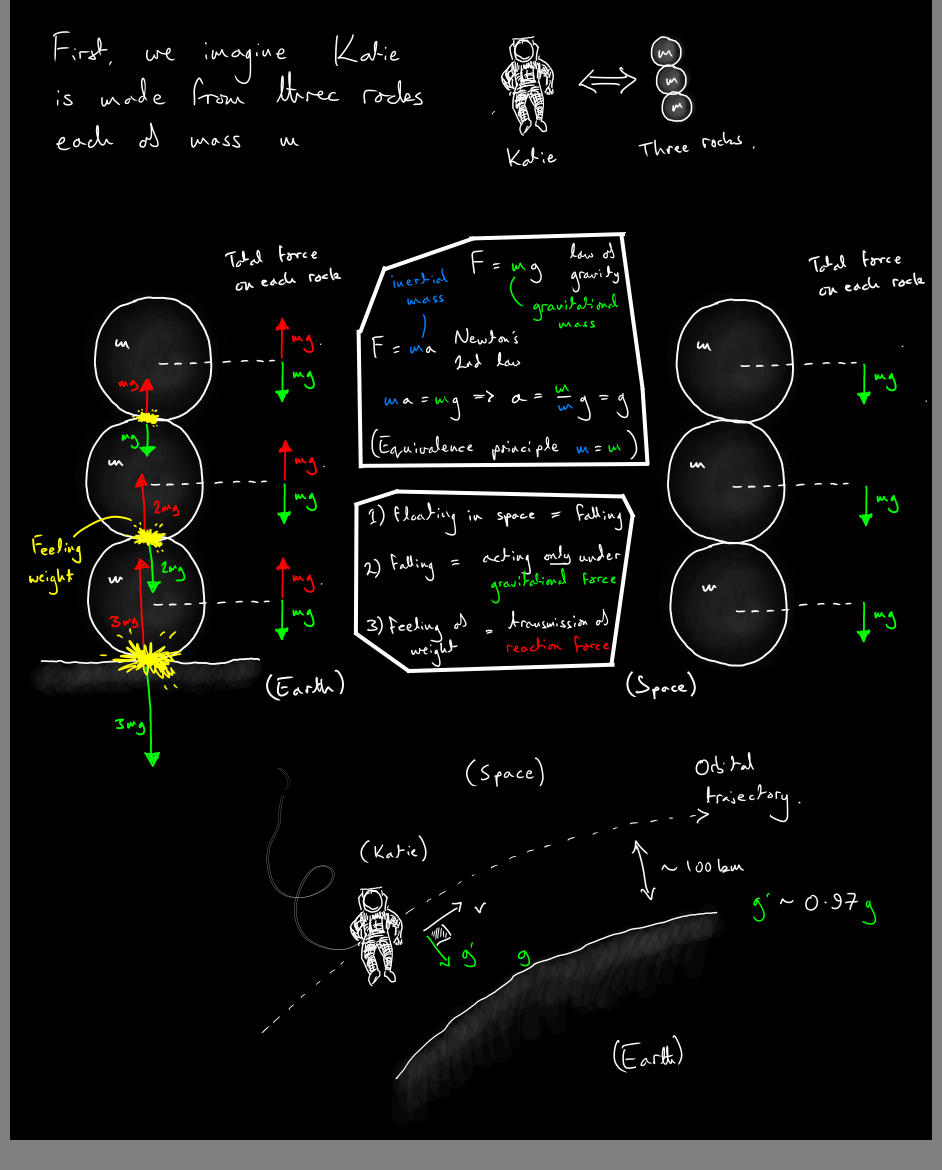 First, we imagine Katie
is made from three rocks
each of mass m
m
m
m
Katie
Three rocks.
Total Force
on each rock
m
mg
mg
mg.
mg
m
2mg
2mg
mg.
mg
Feeling
weight
m
3mg
3mg
mg.
mg
(Earth)
F = mg
law of
gravity
inertial
mass
gravitational
mass
F = ma
Newton's
2nd law
ma = mg => a = m/m g = g
(Equivalence principle m = m)
1) Floating in space = Falling
2) Falling = acting only under
gravitational force
3) Feeling of weight = transmission of
reaction force
Total Force
on each rock
m
mg
m
mg
m
mg
(Space)
(Space)
Orbital
trajectory.
(Katie)
~ 100 km
v
g'
g
g' ~ 0.97g
(Earth)